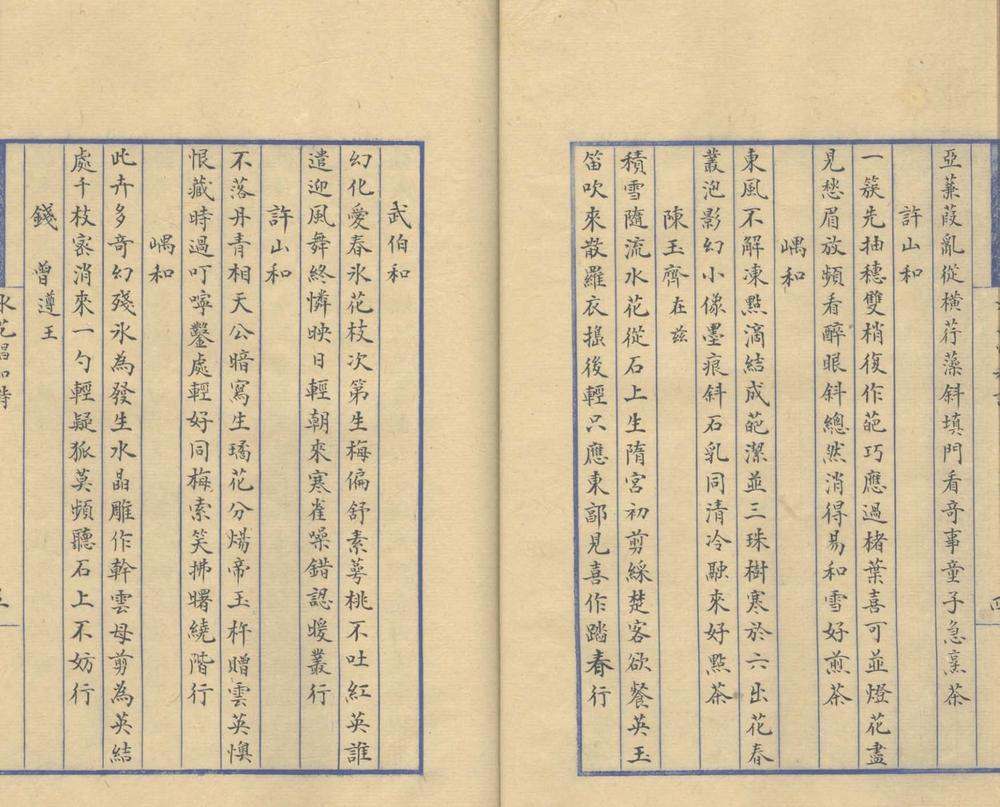 亞蒹葭亂從橫荇藻斜填門看奇事童子急烹茶
許山和
一簇先抽穗雙梢復作葩巧應過楮葉喜可並燈花盡
見愁眉放頻看醉眼斜總然消得易和雪好煎茶
嵎和
東風不解凍點滴結成葩潔並三珠樹寒於六出花春
叢泡影幻小像墨痕斜石乳同清冷融來好點茶
陳玉齊在茲
積雪隨流水花從石上生隋宮初剪綵楚客欲餐英玉
笛吹來散羅衣搖後輕只應東郭見喜作踏春行
武伯和
幻化愛春氷花枝次第生梅偏舒素萼桃不吐紅英誰
遣迎風舞終憐映日輕朝來寒雀噪錯認暖叢行
許山和
不落丹青相天公暗寫生璚花分煬帝玉杵贈雲英懊
恨藏時過叮嚀鑿處輕好同梅索笑拂曙繞階行
嵎和
此卉多奇幻殘氷為發生水晶雕作幹雲母剪為英結
處千枝密消來一勺輕疑狐莫頻聽石上不妨行
錢曾遵王
氷花唱和詩